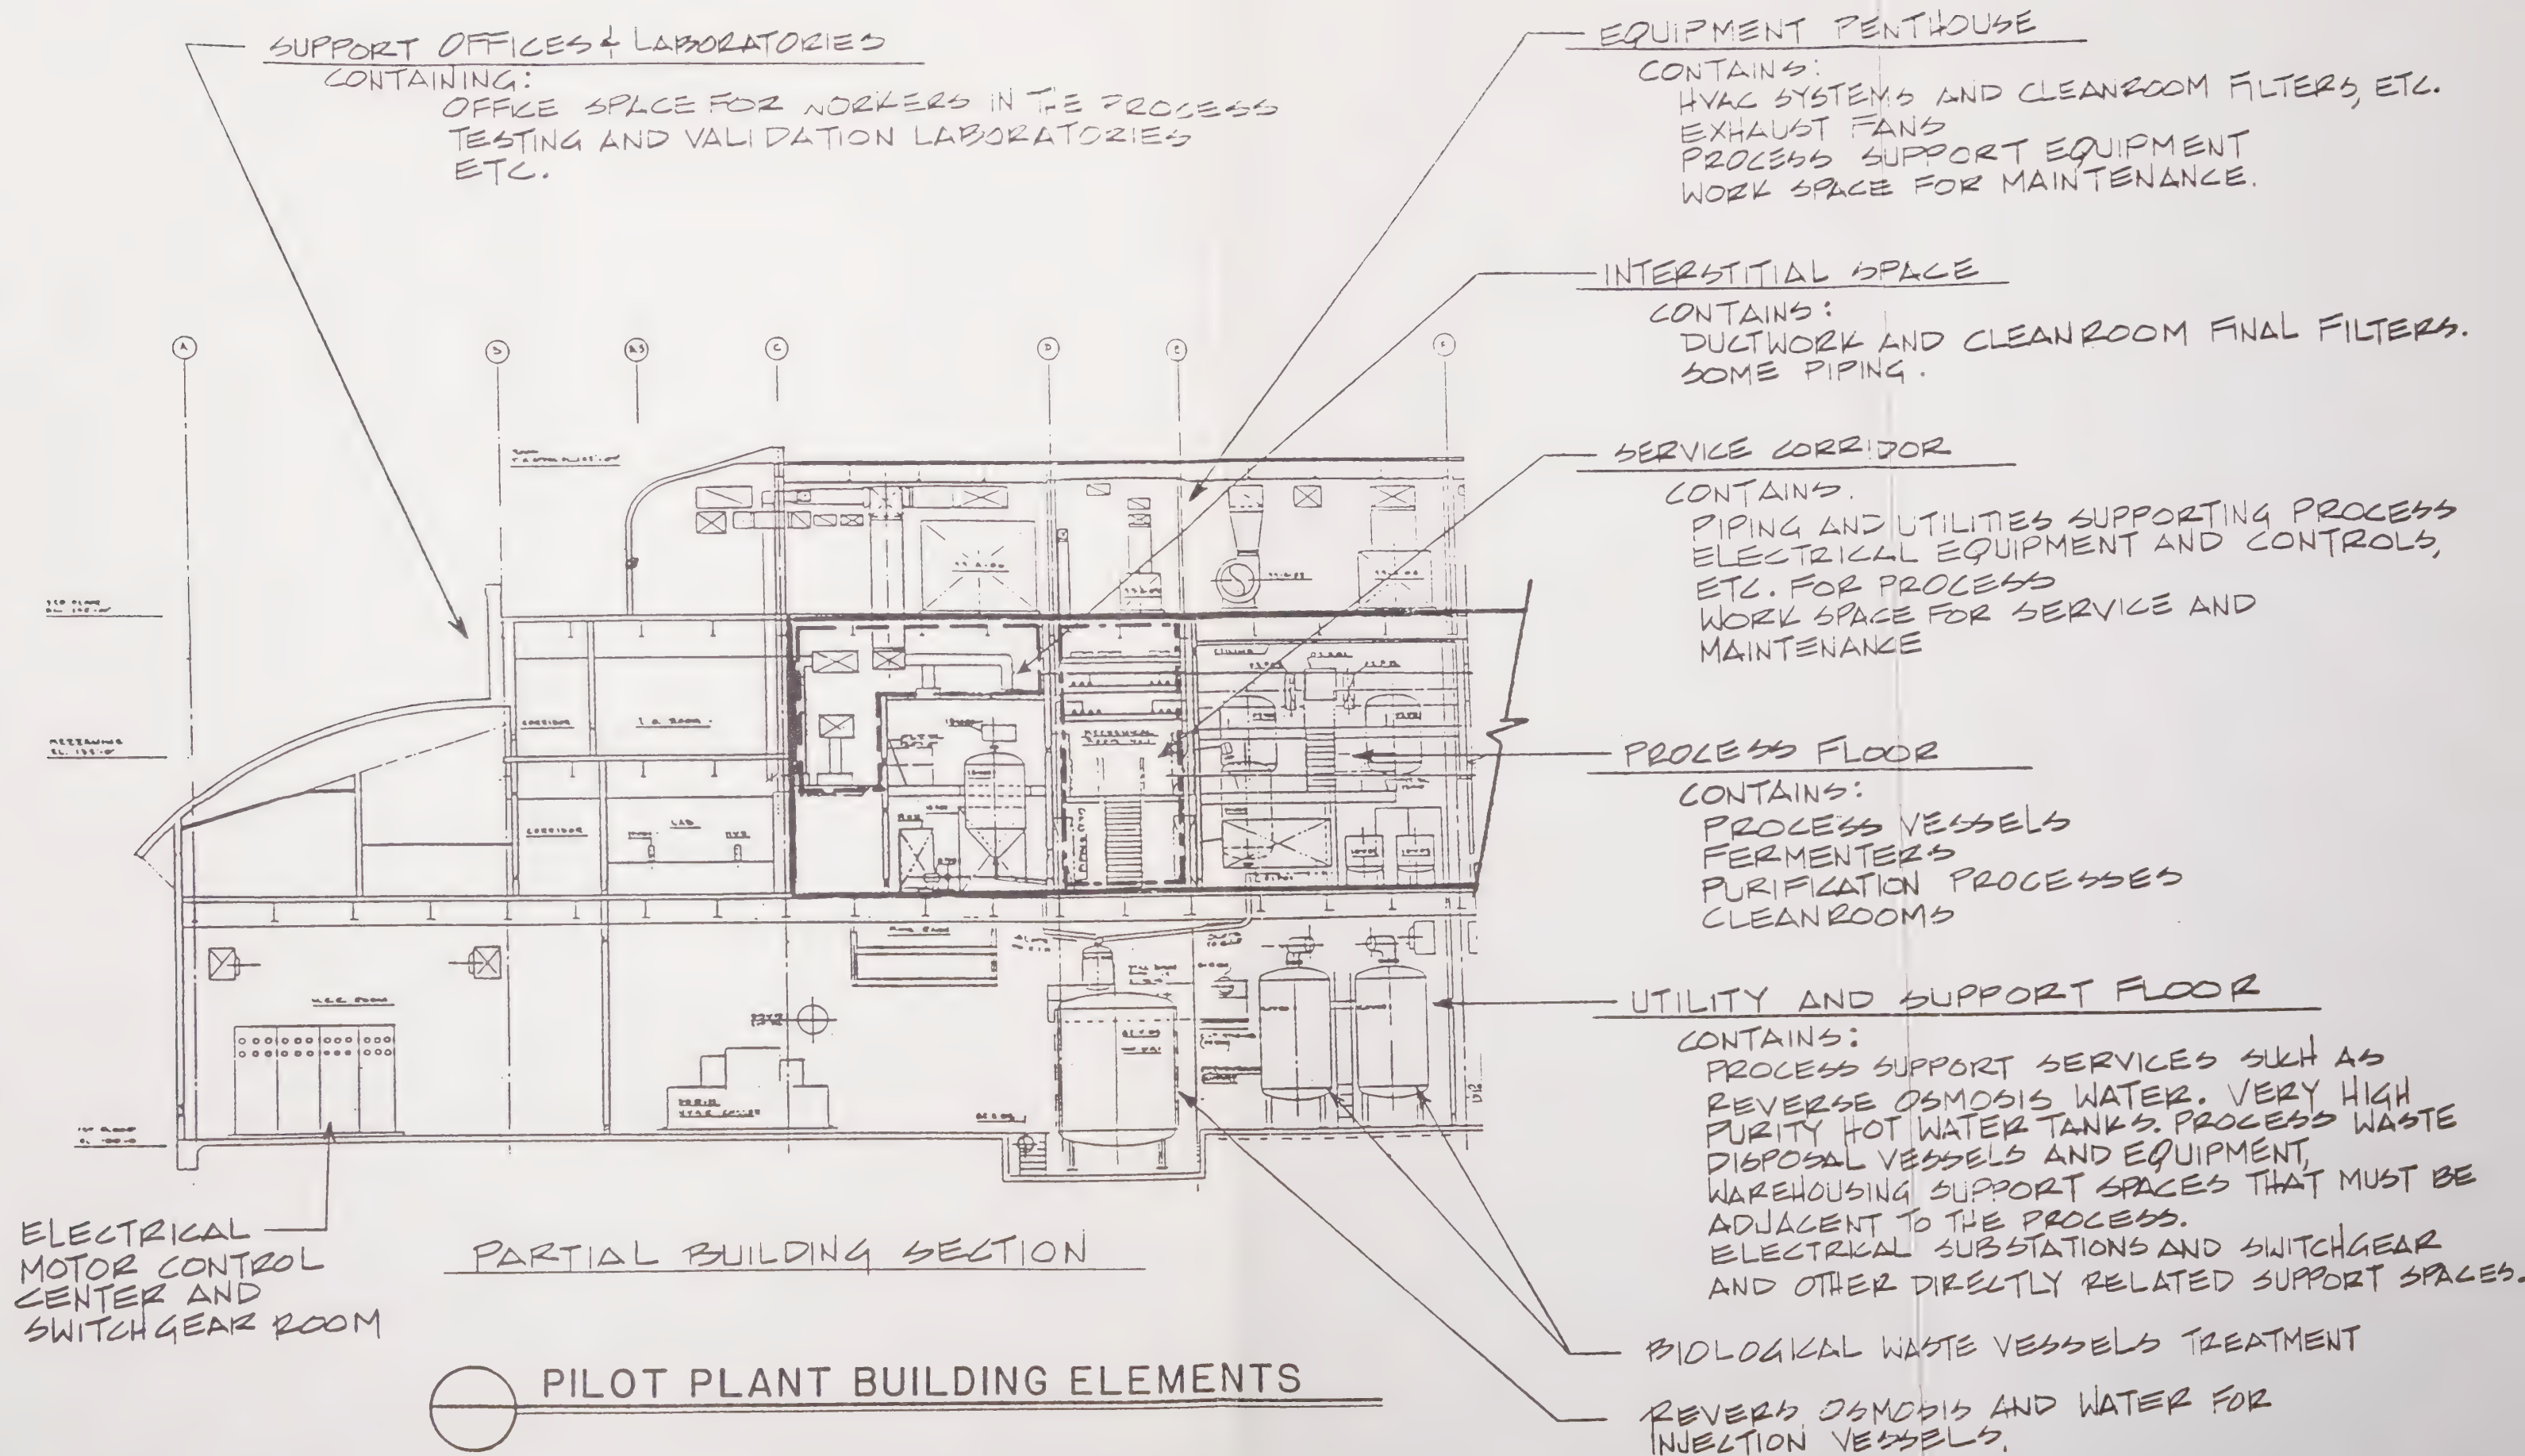 SUPPORT OFFICES & LABORATORIES
CONTAINING:
OFFICE SPACE FOR WORKERS IN THE PROCESS
TESTING AND VALIDATION LABORATORIES
ETC.
EQUIPMENT PENTHOUSE
CONTAINS:
HVAC SYSTEMS AND CLEANROOM FILTERS, ETC.
EXHAUST FANS
PROCESS SUPPORT EQUIPMENT
WORK SPACE FOR MAINTENANCE.
INTERSTITIAL SPACE
CONTAINS:
DUCTWORK AND CLEANROOM FINAL FILTERS.
SOME PIPING.
SERVICE CORRIDOR
CONTAINS.
PIPING AND UTILITIES SUPPORTING PROCESS
ELECTRICAL EQUIPMENT AND CONTROLS,
ETC. FOR PROCESS
WORK SPACE FOR SERVICE AND
MAINTENANCE
PROCESS FLOOR
CONTAINS:
PROCESS VESSELS
FERMENTERS
PURIFICATION PROCESSES
CLEANROOMS
UTILITY AND SUPPORT FLOOR
CONTAINS:
PROCESS SUPPORT SERVICES SUCH AS
REVERSE OSMOSIS WATER. VERY HIGH
PURITY HOT WATER TANKS. PROCESS WASTE
DISPOSAL VESSELS AND EQUIPMENT,
WAREHOUSING SUPPORT SPACES THAT MUST BE
ADJACENT TO THE PROCESS.
ELECTRICAL SUBSTATIONS AND SWITCHGEAR
AND OTHER DIRECTLY RELATED SUPPORT SPACES.
BIOLOGICAL WASTE VESSELS TREATMENT
REVERS OSMOSIS AND WATER FOR
INJECTION VESSELS.
A
C
D
E
CORRIDOR
CORRIDOR
LAB
M.C.C. ROOM
ELECTRICAL
MOTOR CONTROL
CENTER AND
SWITCHGEAR ROOM
PARTIAL BUILDING SECTION
PILOT PLANT BUILDING ELEMENTS